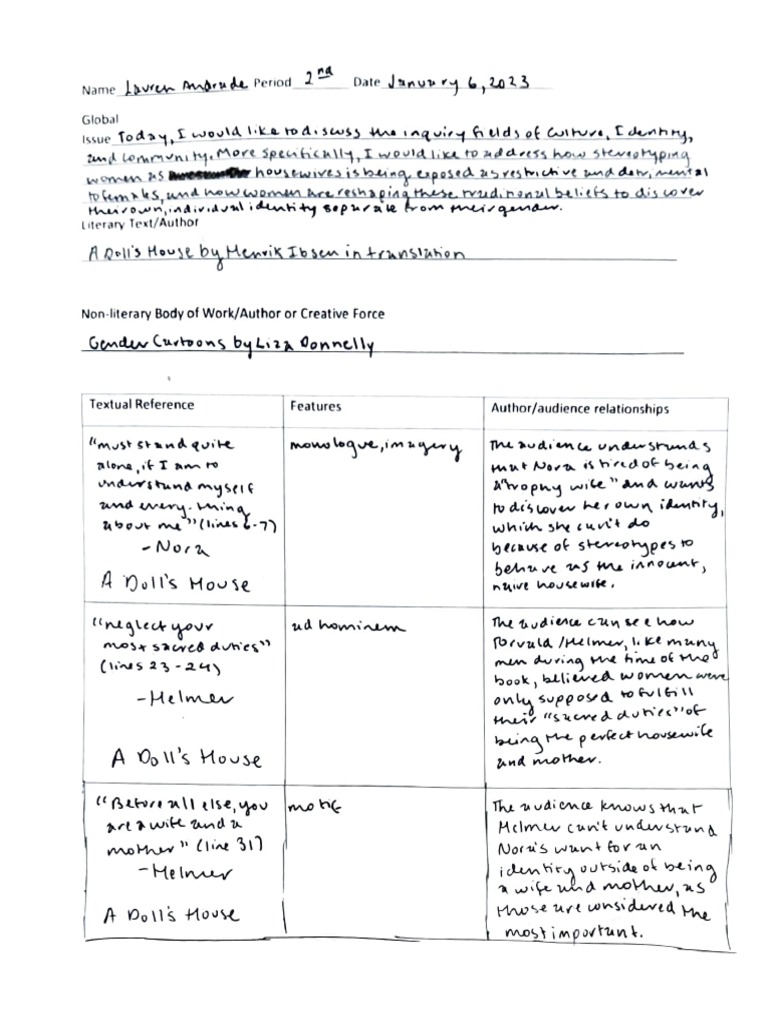 Name Lauren Andrade Period 2nd Date January 6, 2023
Global
Issue Today, I would like to discuss the inquiry fields of Culture, Identity,
and community. More specifically, I would like to address how stereotyping
women as housewives is being exposed as restrictive and detrimental
to females, and how women are reshaping these traditional beliefs to discover
their own, individual identity separate from their gender.
Literary Text/Author
A Doll's House by Henrik Ibsen in translation
Non-literary Body of Work/Author or Creative Force
Gender Cartoons by Liza Donnelly
Textual Reference
Features
Author/audience relationships
"must stand quite
alone, if I am to
understand myself
and every-thing
about me" (lines 6-7)
- Nora
A Doll's House
monologue, imagery
The audience understands
that Nora is tired of being
a "trophy wife" and wants
to discover her own identity,
which she can't do
because of stereotypes to
behave as the innocent,
naive housewife.
"neglect your
most sacred duties"
(lines 23-24)
- Helmer
A Doll's House
ad hominem
The audience can see how
Torvald/Helmer, like many
men during the time of the
book, believed women were
only supposed to fulfill
their "sacred duties" of
being the perfect housewife
and mother.
"Before all else, you
are a wife and a
mother" (line 31)
- Helmer
A Doll's House
motif
The audience knows that
Helmer can't understand
Nora's want for an
identity outside of being
a wife and mother, as
those are considered the
most important.